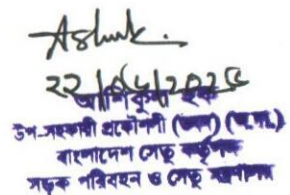 Ashik.
২২/০৫/২০২৫
আশিকুল হক
উপ-সহকারী প্রকৌশলী
বাংলাদেশ সেতু কর্তৃপক্ষ
সড়ক পরিবহন ও সেতু মন্ত্রণালয়